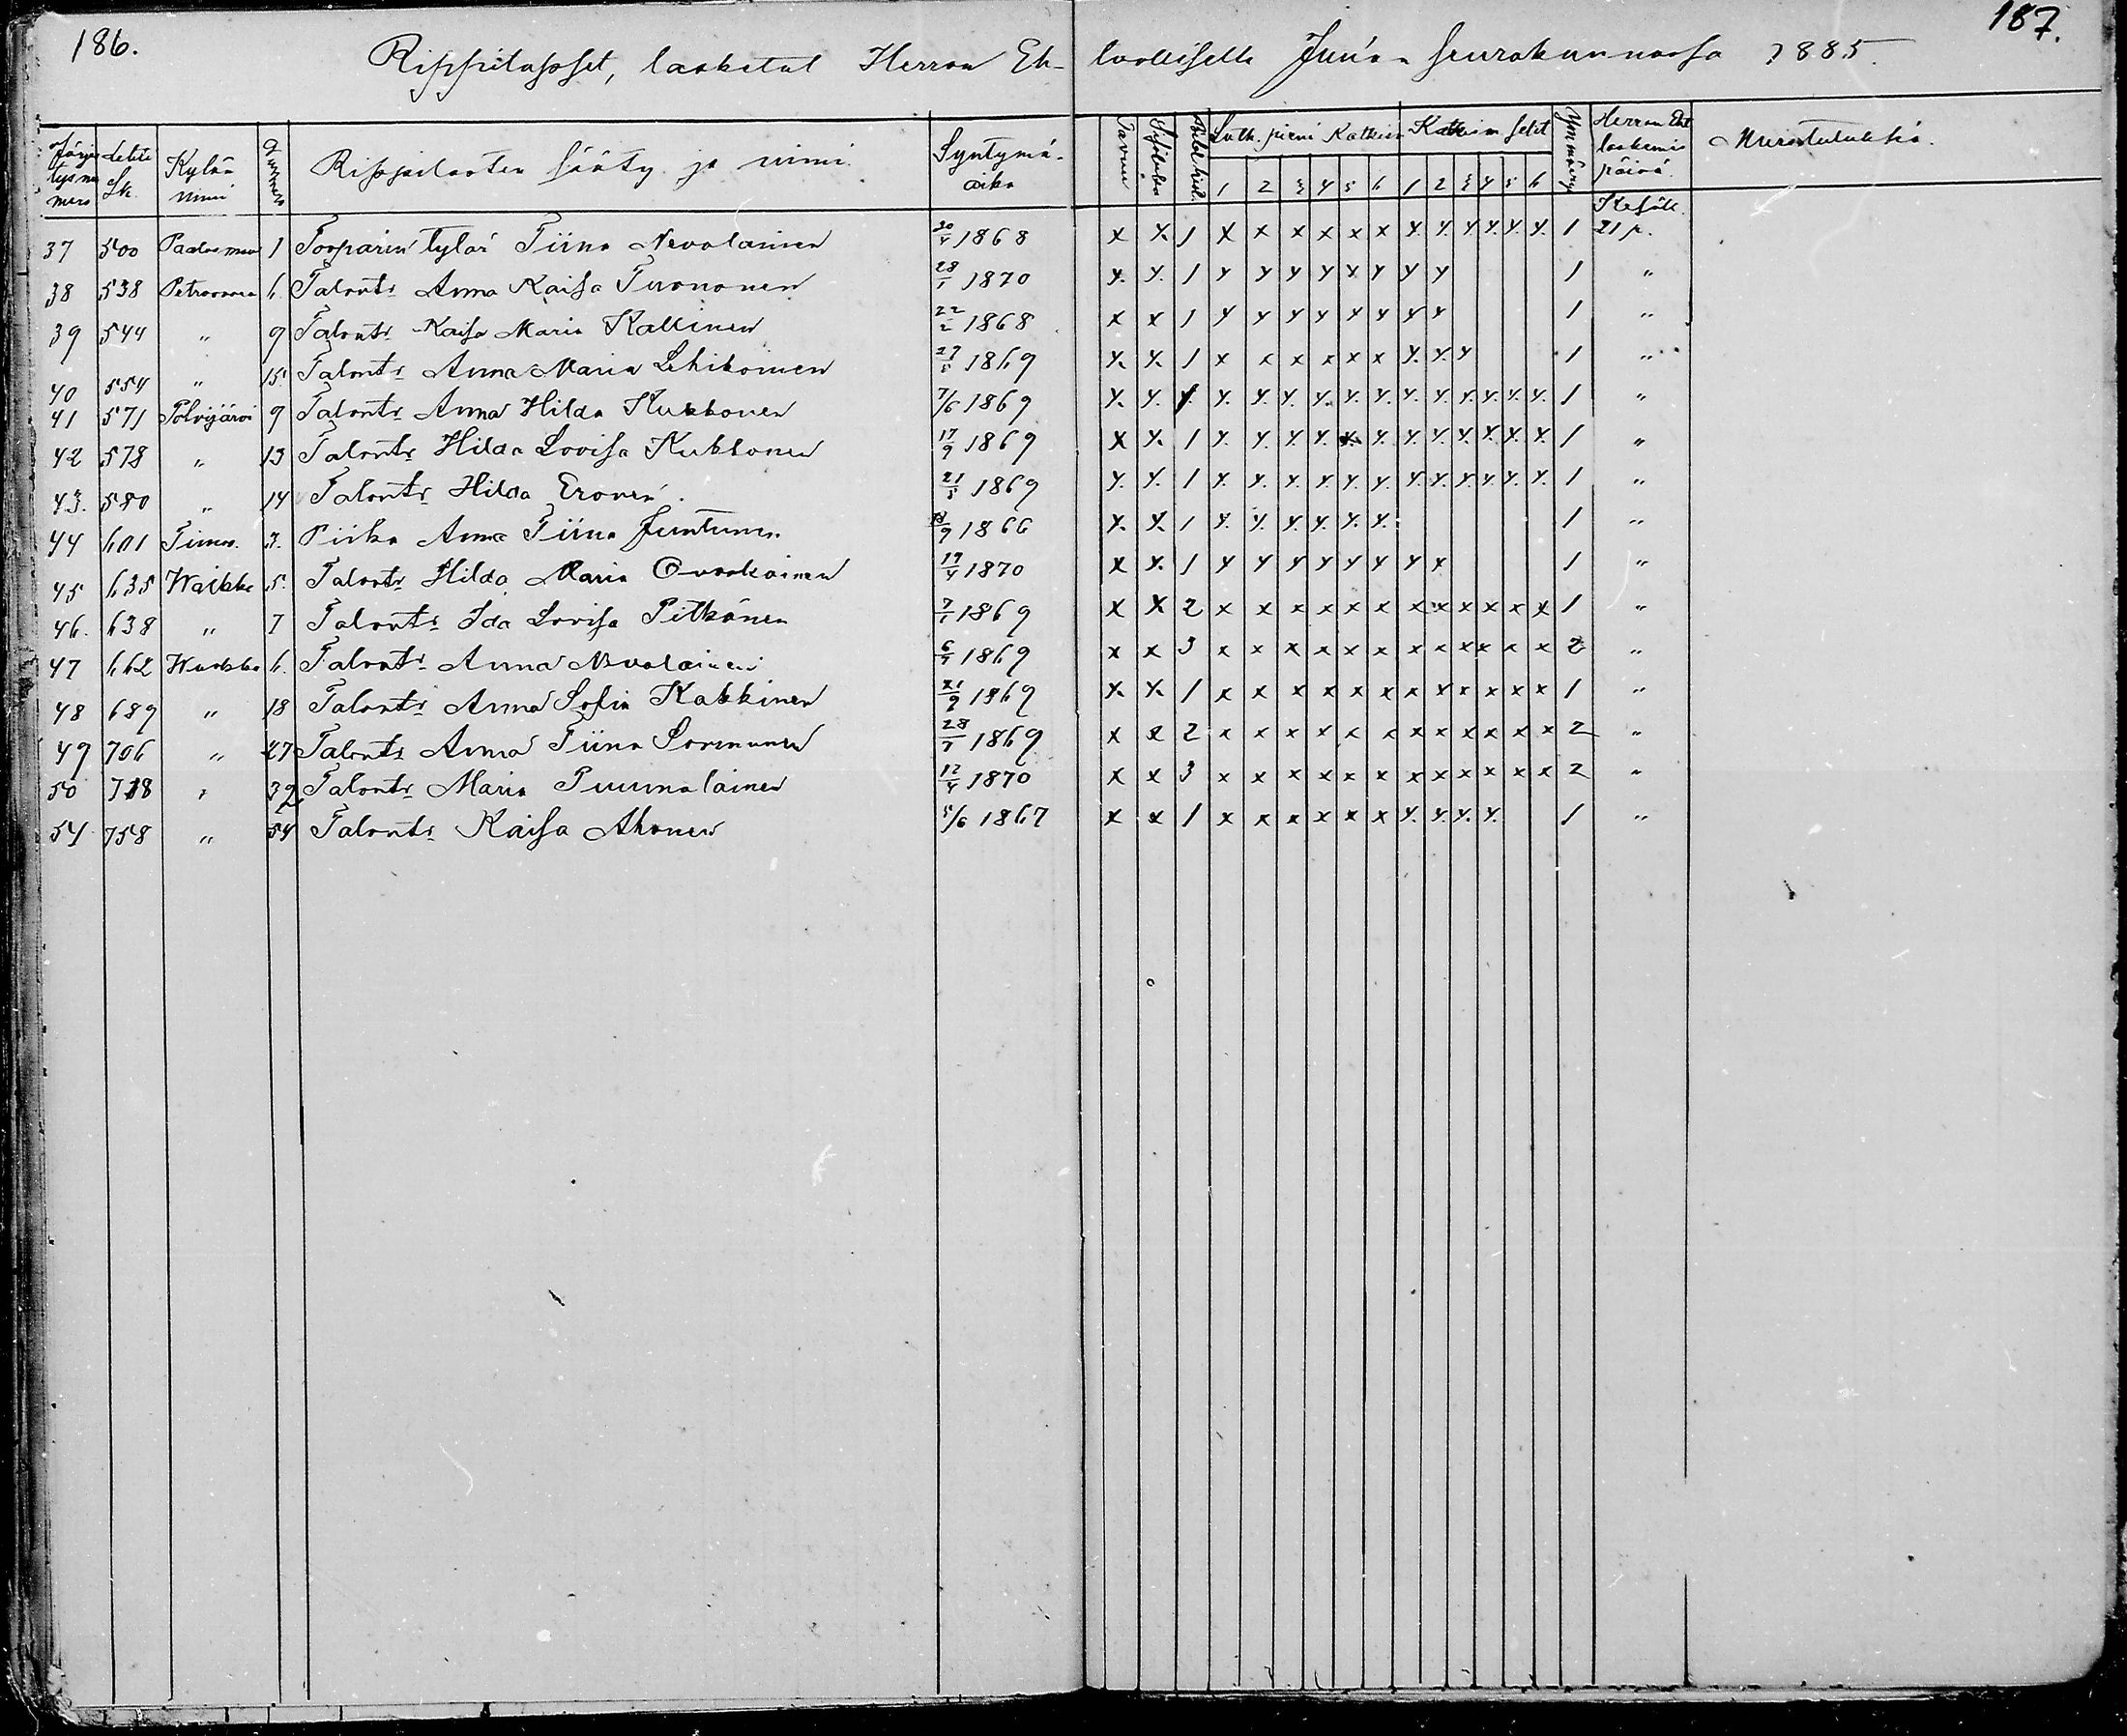 186.
187.
Rippilapset, lasketut Herran Eh- toolliselle Juu'an seurakunnassa 1885.
Järjes tys nu mero Lehti Sk. Kylän nimi Numero Rippilasten sääty ja nimi. Syntymä- aika Tavuu Sisäluku Luth. pieni Katkism 1 2 3 4 5 6 Katkism selit 1 2 3 4 5 6 Ymmärrys Herran Eht laskemis päivä. Muistutuksia.
Kesäk.
37 500 1 Tiina Nevalainen 20/4 1868 x x. 1 x x x x x x x. x. x. x. x. x. 1 21 p.
38 538 Petrovaara 6. Talontr Anna Kaisa Turononen 28/1 1870 x. x. 1 x x x x x x x x 1 "
39 544 " 9 Talontr Kaisa Maria Kallinen 22/2 1868 x x 1 x x x x x x x x 1 "
40 554 " 15 Talontr Anna Maria Lehikoinen 27/5 1869 x. x. 1 x x x x x x x. x. x 1 "
41 571 Polvijärvi 9 Talontr Anna Hilda Kukkonen 7/6 1869 x. x. 1. x. x. x. x. x. x. x. x. x. x. x. x. 1 "
42 578 " 13 Talontr Hilda Lovisa Kukkonen 17/9 1869 x x. 1 x. x. x. x. x. x. x. x. x. x. x. x. 1 "
43. 580 " 14 Talontr Hilda Eronen. 21/5 1869 x. x. 1 x. x. x. x. x. x. x. x. x. x. x. x. 1 "
44 601 Timov. 3. Piika Anna Tiina Juntunen 18/9 1866 x. x. 1 x. x. x. x. x. x. 1 "
45 635 5. Talontr Hilda Maria Ovaskainen 19/4 1870 x x. 1 x x x x x x x x 1 "
46. 638 " 7 Talontr Ida Lovisa Pitkänen 7/1 1869 x x 2 x x x x x x x x x x x x 1 "
47 662 6. Talontr Anna Nevalainen 6/7 1869 x x 3 x x x x x x x x x x x x 2 "
48 689 " 18 Talontr Anna Sofia Kakkinen 21/9 1869 x. x. 1 x x x x x x x x x x x x 1 "
49 706 " 27 Talontr Anna Tiina Sormunen 28/7 1869 x x 2 x x x x x x x x x x x x 2 "
50 718 " 32 Talontr Maria Puumalainen 12/4 1870 x x 3 x x x x x x x x x x x x 2 "
51 758 " 54 Talontr Kaisa Ahonen 5/6 1867 x x 1 x x x x x x x. x. x. x. 1 "